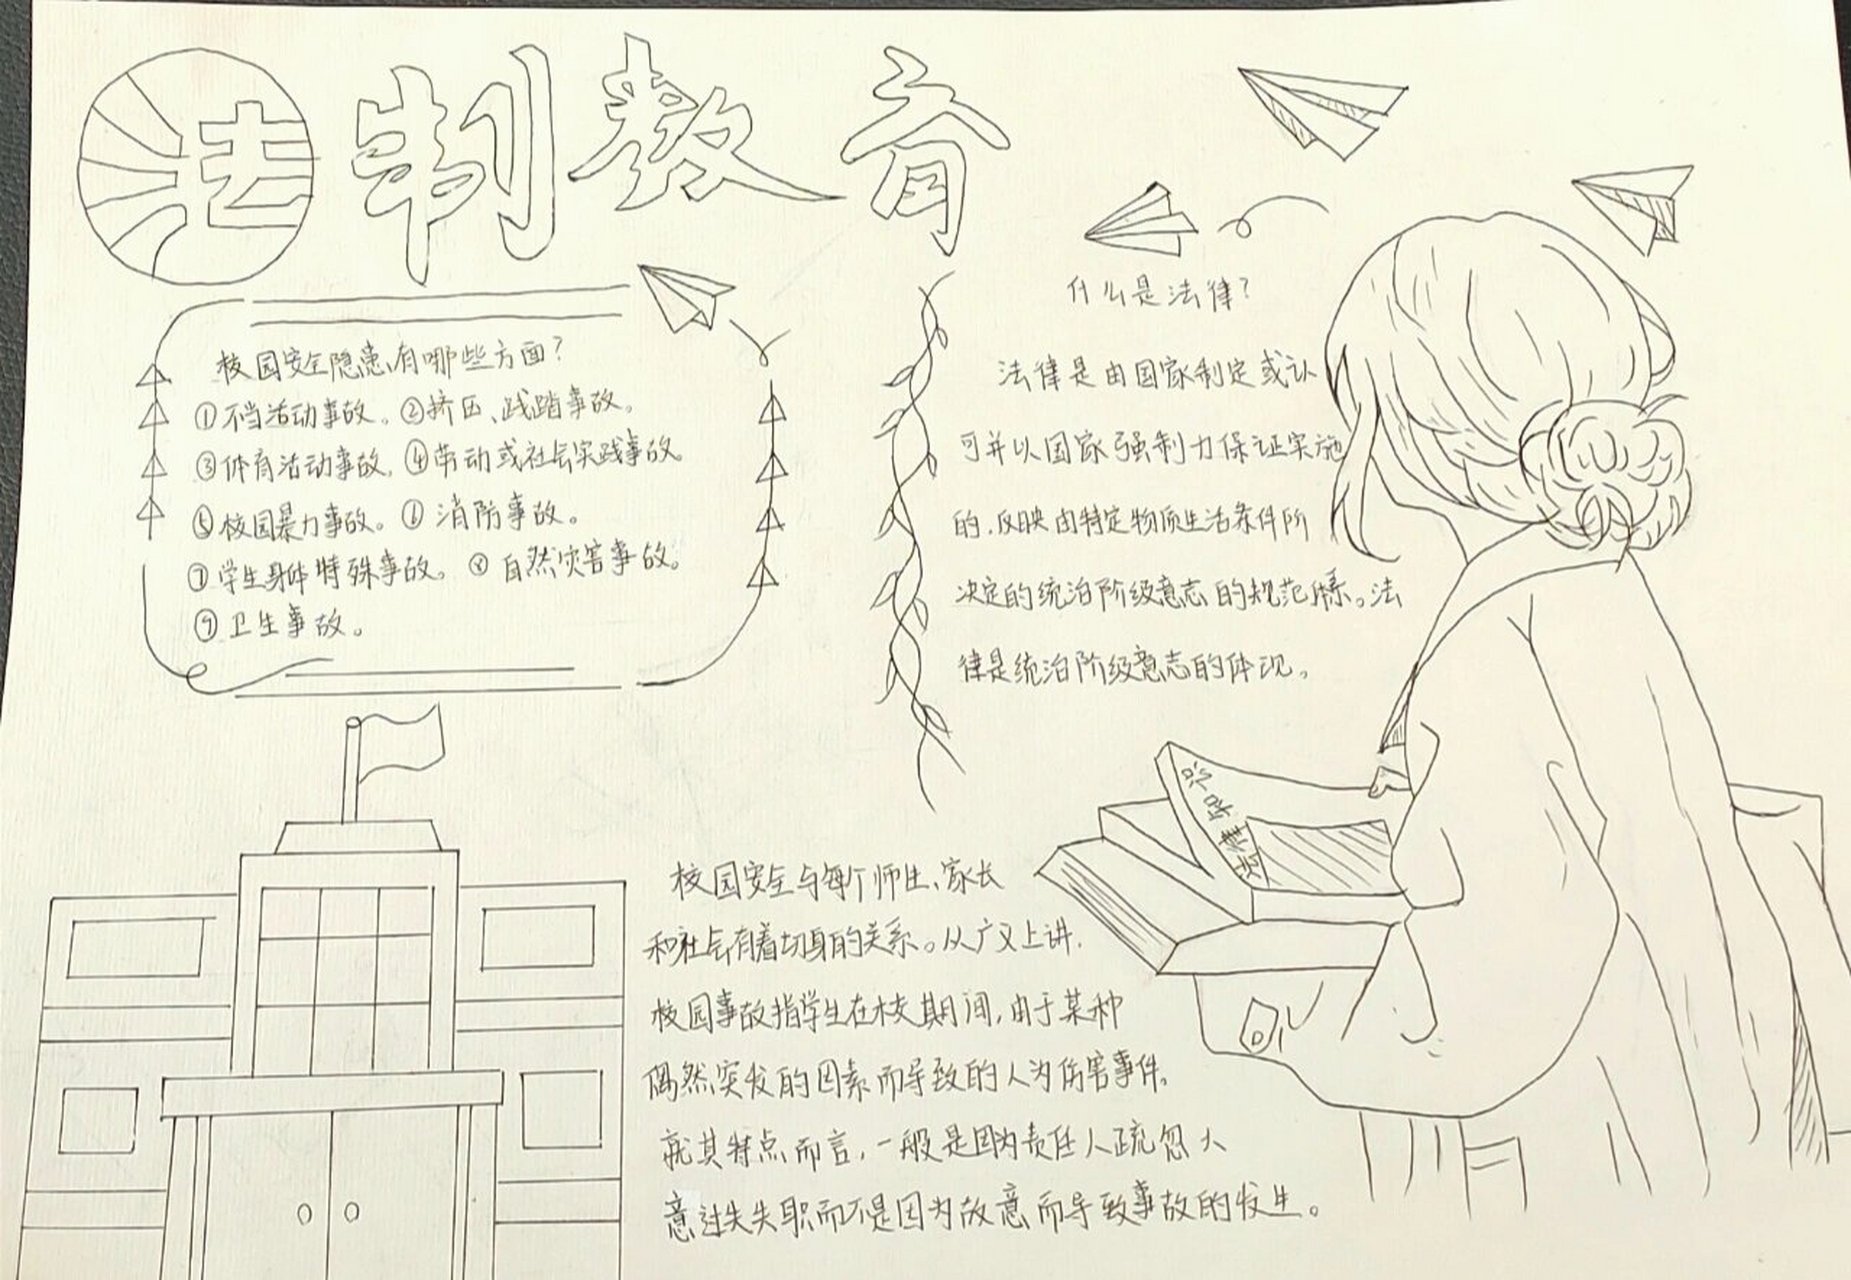 法制教育
校园安全隐患有哪些方面？
①不当活动事故。②挤压、践踏事故。
③体育活动事故。④劳动或社会实践事故。
⑤校园暴力事故。⑥消防事故。
⑦学生身体特殊事故。⑧自然灾害事故。
⑨卫生事故。
什么是法律？
法律是由国家制定或认
可并以国家强制力保证实施
的，反映由特定物质生活条件所
决定的统治阶级意志的规范体系。法
律是统治阶级意志的体现。
法律知识
校园安全与每个师生、家长
和社会有着切身的关系。从广义上讲，
校园事故指学生在校期间，由于某种
偶然突发的因素而导致的人为伤害事件。
就其特点而言，一般是因为责任人疏忽大
意过失失职而不是因为故意而导致事故的发生。